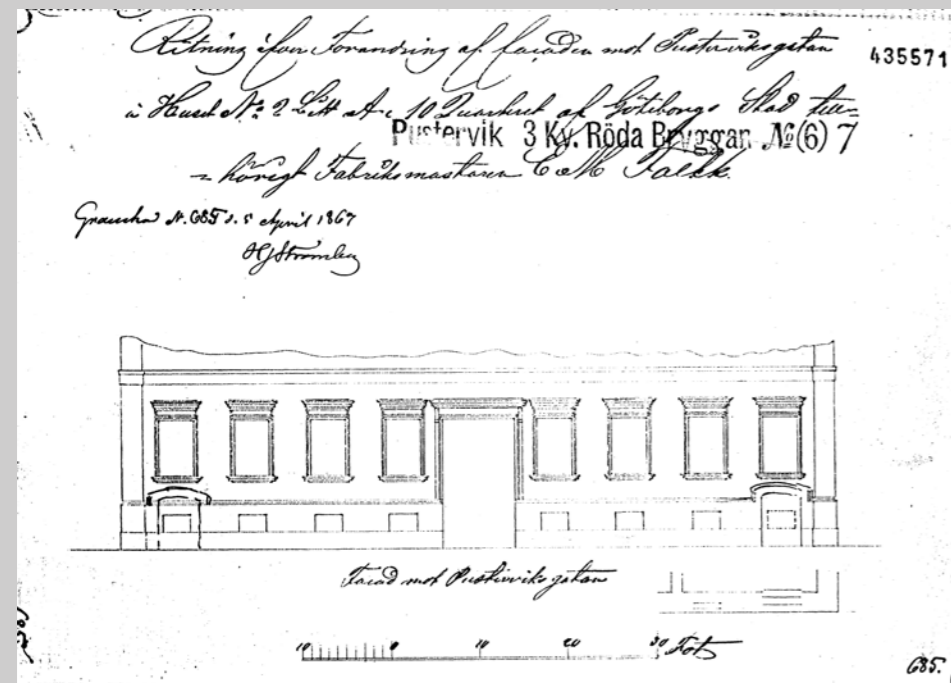 Ritning öfver Förandring af façaden mot Pusterviksgatan
435571
à Huset No 2 Litt A i 10 Quarteret af Götheborgs Stad till=
Pustervik 3 Kv. Röda Bryggan No (6) 7
=hörigt Fabriksmästaren C M Falkk.
N. 685 d. 5 April 1867
HJStrömberg
Facad mot Pusterviksgatan
10 0 10 20 30 Fot
685.